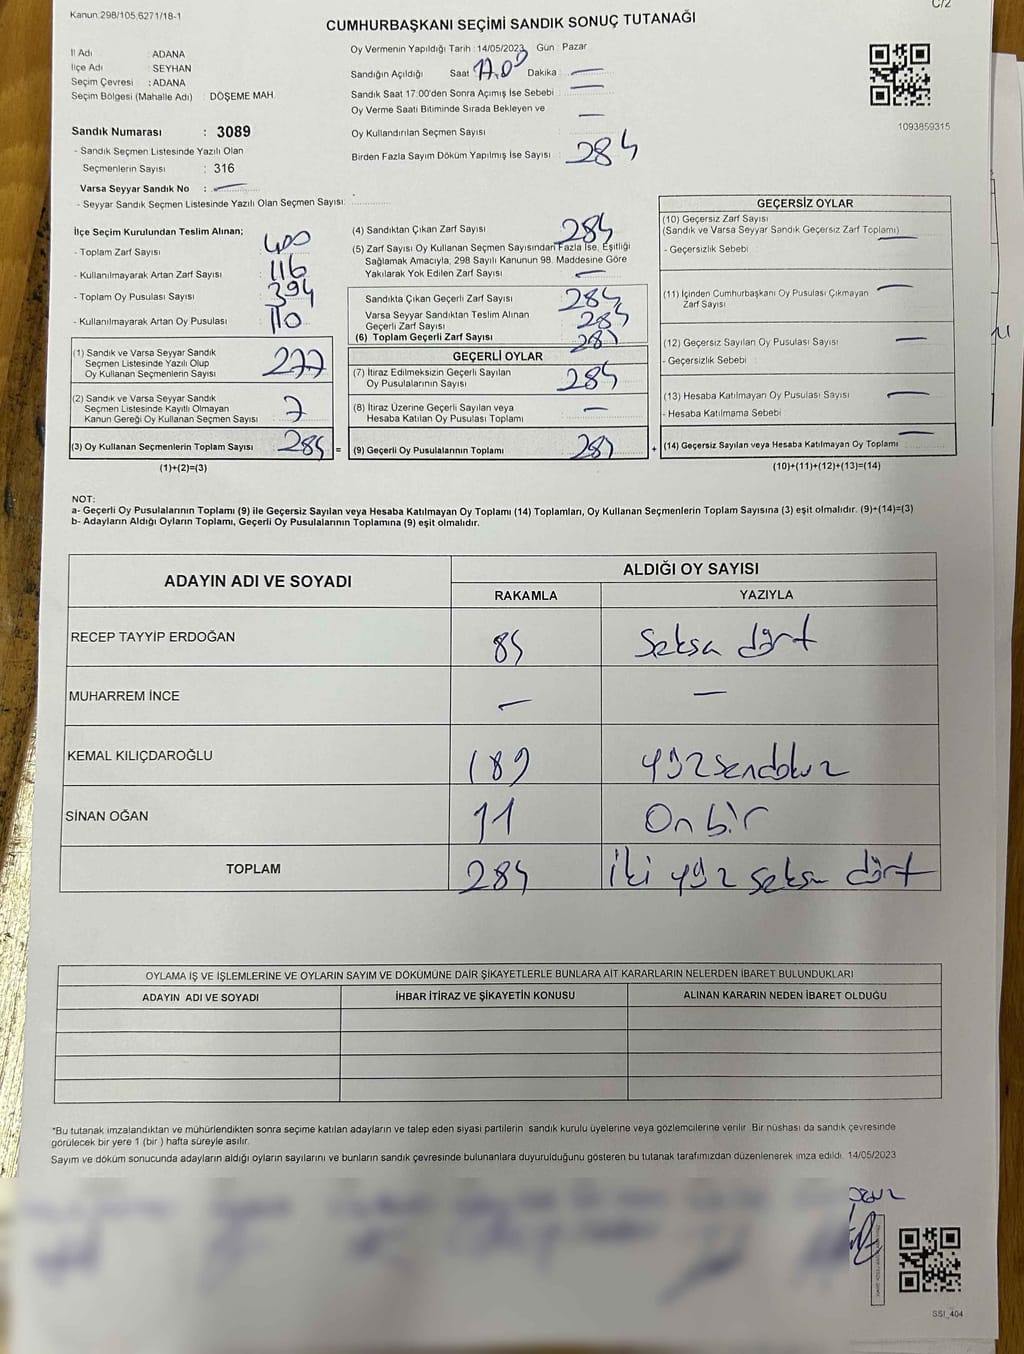 Kanun.298/105,6271/18-1
C/2
CUMHURBAŞKANI SEÇİMİ SANDIK SONUÇ TUTANAĞI
İl Adı : ADANA
İlçe Adı : SEYHAN
Seçim Çevresi : ADANA
Seçim Bölgesi (Mahalle Adı) : DÖŞEME MAH.
Sandık Numarası : 3089
- Sandık Seçmen Listesinde Yazılı Olan
Seçmenlerin Sayısı : 316
Varsa Seyyar Sandık No : —
- Seyyar Sandık Seçmen Listesinde Yazılı Olan Seçmen Sayısı:
Oy Vermenin Yapıldığı Tarih : 14/05/2023 Gün : Pazar
Sandığın Açıldığı Saat 17.00 Dakika : —
Sandık Saat 17:00'den Sonra Açımış İse Sebebi : —
Oy Verme Saati Bitiminde Sırada Bekleyen ve
Oy Kullandırılan Seçmen Sayısı : —
Birden Fazla Sayım Döküm Yapılmış İse Sayısı : 284
1093859315
İlçe Seçim Kurulundan Teslim Alınan;
- Toplam Zarf Sayısı : 400
- Kullanılmayarak Artan Zarf Sayısı : 116
- Toplam Oy Pusulası Sayısı : 394
- Kullanılmayarak Artan Oy Pusulası : 110
(1) Sandık ve Varsa Seyyar Sandık
Seçmen Listesinde Yazılı Olup
Oy Kullanan Seçmenlerin Sayısı 277
(2) Sandık ve Varsa Seyyar Sandık
Seçmen Listesinde Kayıtlı Olmayan
Kanun Gereği Oy Kullanan Seçmen Sayısı 7
(3) Oy Kullanan Seçmenlerin Toplam Sayısı 284 =
(1)+(2)=(3)
(4) Sandıktan Çıkan Zarf Sayısı 284
(5) Zarf Sayısı Oy Kullanan Seçmen Sayısından Fazla İse, Eşitliği
Sağlamak Amacıyla, 298 Sayılı Kanunun 98. Maddesine Göre
Yakılarak Yok Edilen Zarf Sayısı —
Sandıkta Çıkan Geçerli Zarf Sayısı 284
Varsa Seyyar Sandıktan Teslim Alınan
Geçerli Zarf Sayısı 284
(6) Toplam Geçerli Zarf Sayısı 284
GEÇERLİ OYLAR
(7) İtiraz Edilmeksizin Geçerli Sayılan
Oy Pusulalarının Sayısı 284
(8) İtiraz Üzerine Geçerli Sayılan veya
Hesaba Katılan Oy Pusulası Toplamı —
(9) Geçerli Oy Pusulalarının Toplamı 284 +
GEÇERSİZ OYLAR
(10) Geçersiz Zarf Sayısı
(Sandık ve Varsa Seyyar Sandık Geçersiz Zarf Toplamı) —
- Geçersizlik Sebebi :
(11) İçinden Cumhurbaşkanı Oy Pusulası Çıkmayan —
Zarf Sayısı
(12) Geçersiz Sayılan Oy Pusulası Sayısı —
- Geçersizlik Sebebi :
(13) Hesaba Katılmayan Oy Pusulası Sayısı —
- Hesaba Katılmama Sebebi :
(14) Geçersiz Sayılan veya Hesaba Katılmayan Oy Toplamı —
(10)+(11)+(12)+(13)=(14)
NOT:
a- Geçerli Oy Pusulalarının Toplamı (9) ile Geçersiz Sayılan veya Hesaba Katılmayan Oy Toplamı (14) Toplamları, Oy Kullanan Seçmenlerin Toplam Sayısına (3) eşit olmalıdır. (9)+(14)=(3)
b- Adayların Aldığı Oyların Toplamı, Geçerli Oy Pusulalarının Toplamına (9) eşit olmalıdır.
ADAYIN ADI VE SOYADI
ALDIĞI OY SAYISI
RAKAMLA YAZIYLA
RECEP TAYYİP ERDOĞAN 84 Seksen dört
MUHARREM İNCE — —
KEMAL KILIÇDAROĞLU 189 yüzseksendokuz
SİNAN OĞAN 11 On bir
TOPLAM 284 iki yüz seksen dört
OYLAMA İŞ VE İŞLEMLERİNE VE OYLARIN SAYIM VE DÖKÜMÜNE DAİR ŞİKAYETLERLE BUNLARA AİT KARARLARIN NELERDEN İBARET BULUNDUKLARI
ADAYIN ADI VE SOYADI İHBAR İTİRAZ VE ŞİKAYETİN KONUSU ALINAN KARARIN NEDEN İBARET OLDUĞU
*Bu tutanak imzalandıktan ve mühürlendikten sonra seçime katılan adayların ve talep eden siyasi partilerin sandık kurulu üyelerine veya gözlemcilerine verilir. Bir nüshası da sandık çevresinde
görülecek bir yere 1 (bir ) hafta süreyle asılır.
Sayım ve döküm sonucunda adayların aldığı oyların sayılarını ve bunların sandık çevresinde bulunanlara duyurulduğunu gösteren bu tutanak tarafımızdan düzenlenerek imza edildi. 14/05/2023
SSİ_404